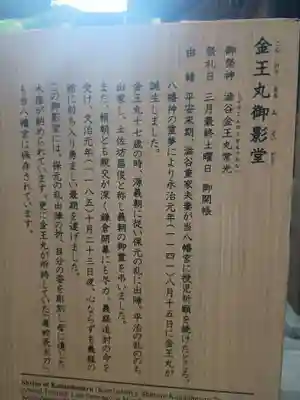 金王丸御影堂
こんのうまるみえいどう
御祭神 澁谷金王丸常光
祭礼日 三月最終土曜日 御開帳
由緒 平安末期、澁谷重家夫妻が当八幡宮に授児祈願を続けたところ、
八幡神の霊夢により永治元年(一一四一)八月十五日に金王丸が
誕生しました。
金王丸十七歳の時、源義朝に従い保元の乱に出陣。平治の乱ののち
出家し、土佐坊昌俊と称し義朝の御霊を弔いました。
また、頼朝とも親交が深く鎌倉開幕にも尽力。義経追討の命を
受け、文治元年(一一八五)十月二十三日夜、心ならずも義経の
館に討ち入り勇ましい最期を遂げました。
この御影堂には、保元の乱出陣の折、自分の姿を彫刻し母に遺した
木像が納められています。更に金王丸が所持していた「毒蛇長太刀」
も当八幡宮に保存されています。
Shrine of Konnohmaru